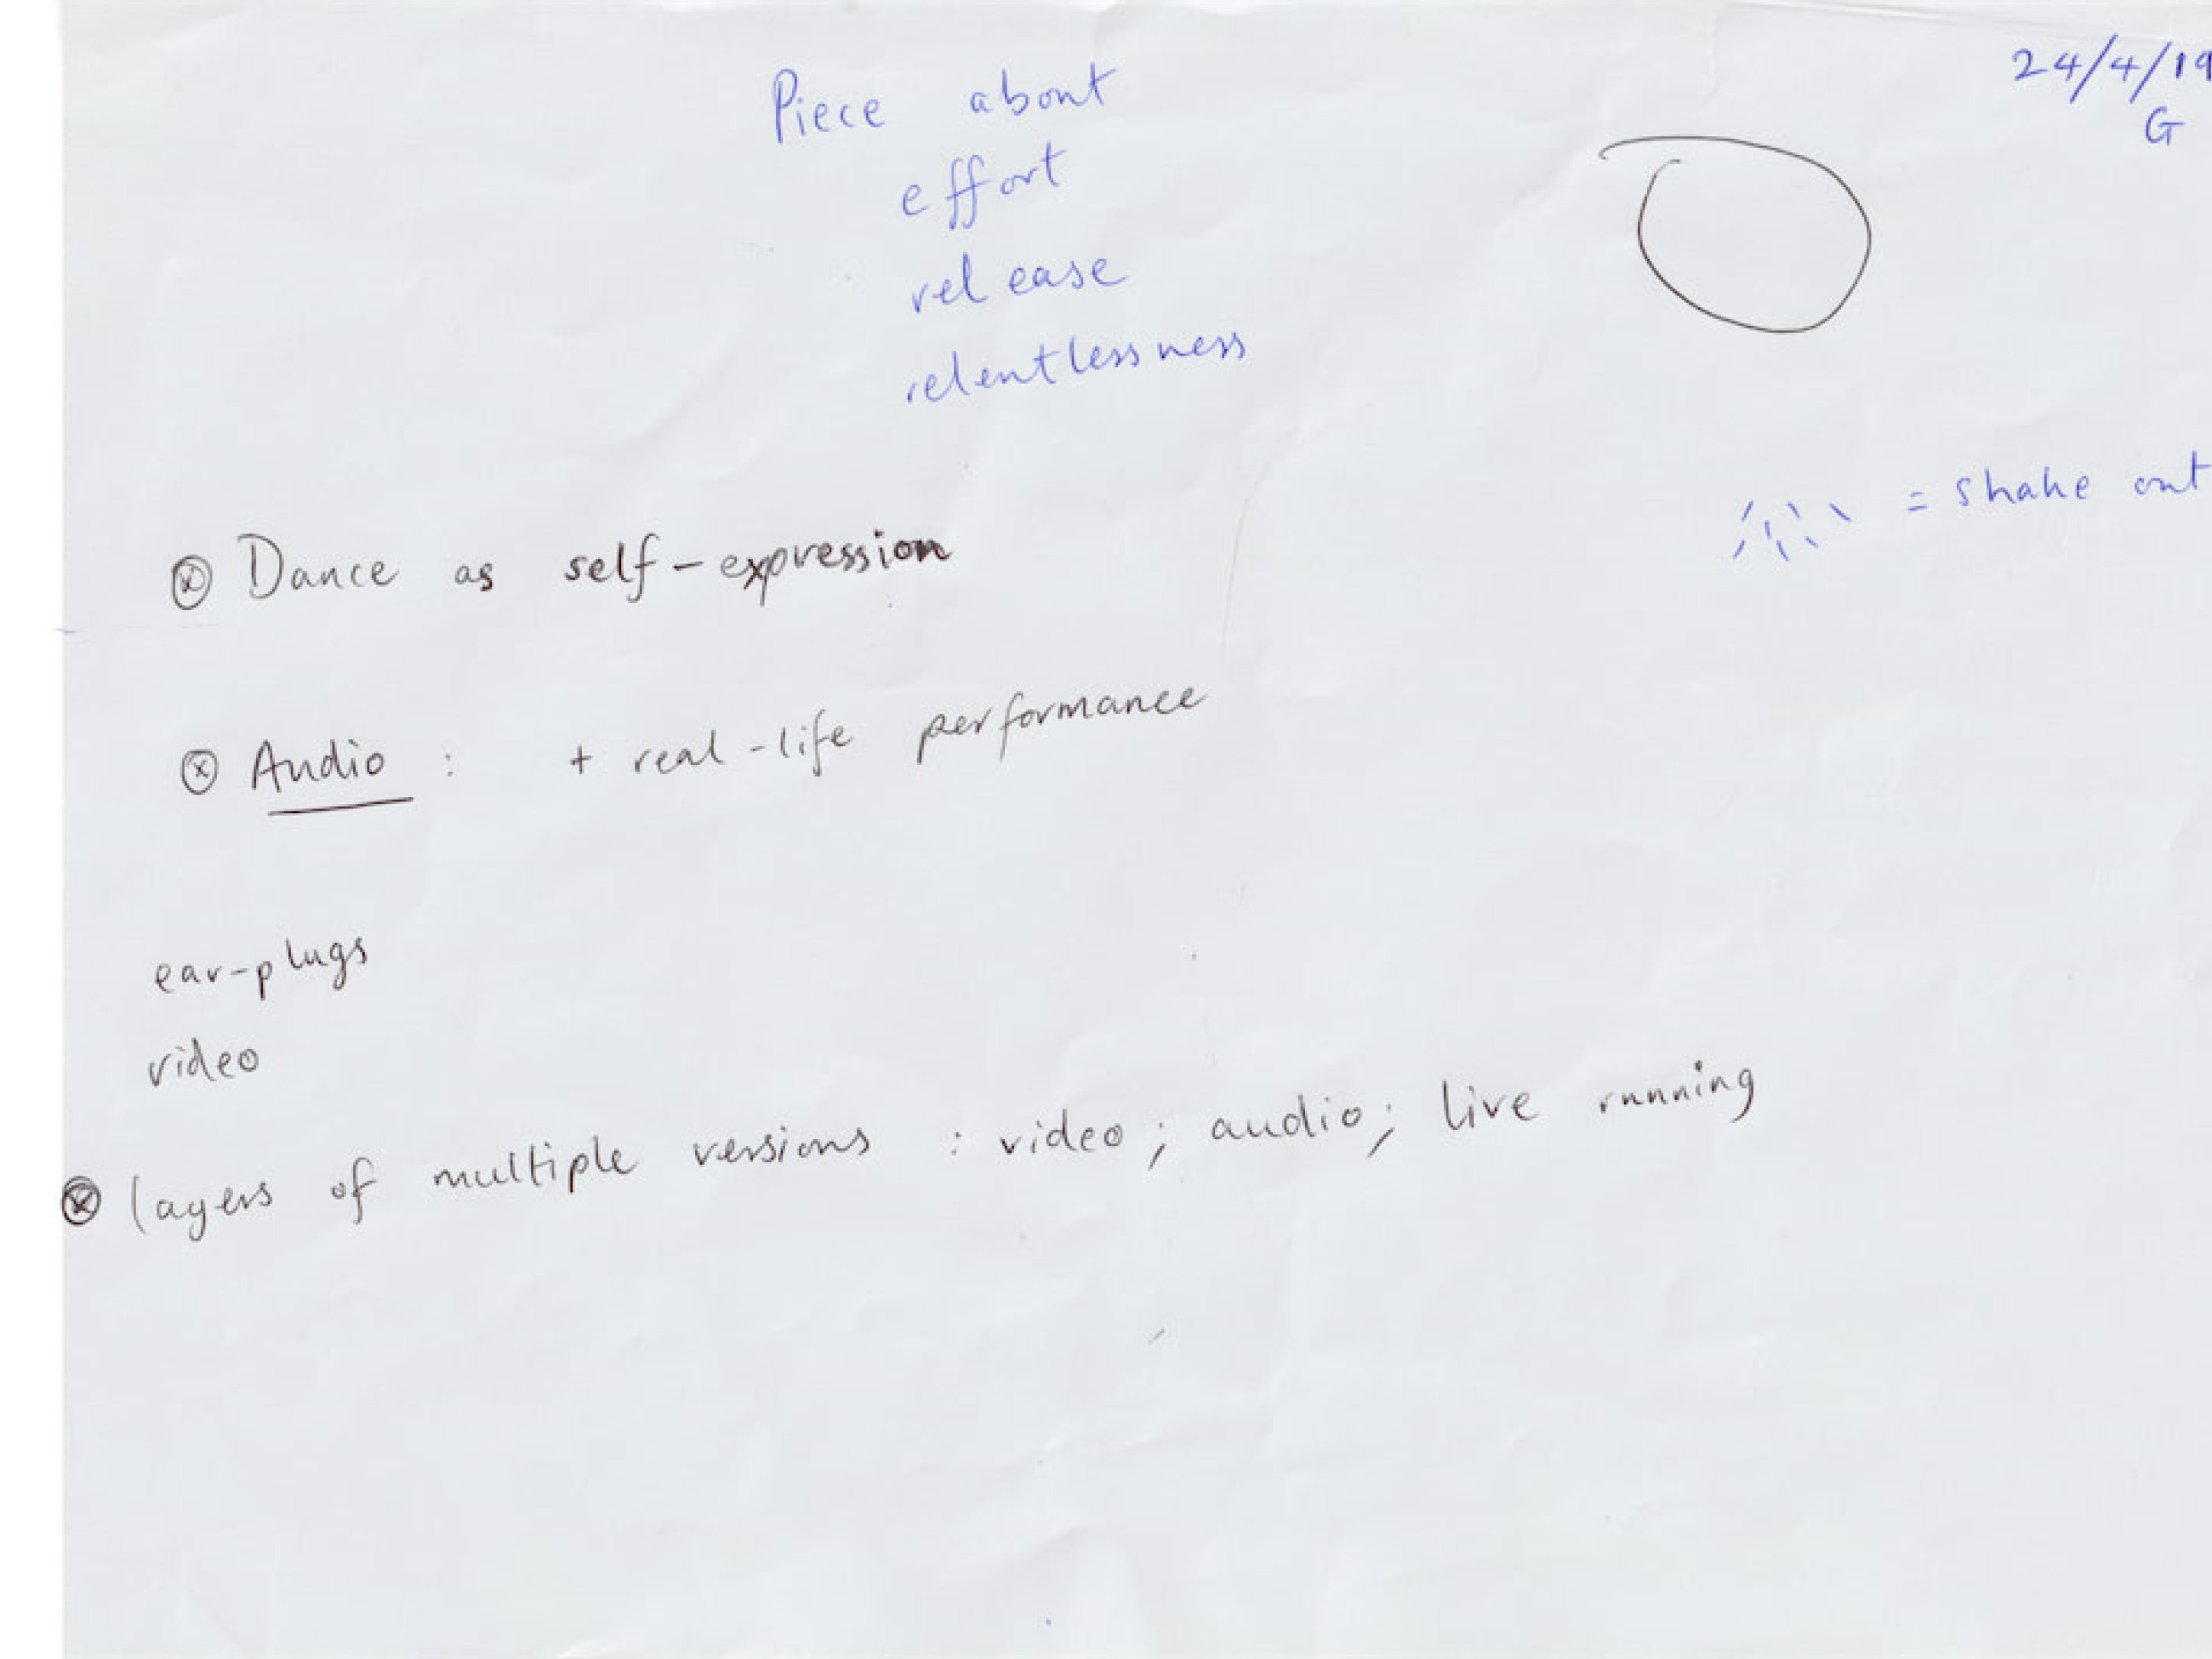 24/4/19
G
Piece about
effort
release
relentlessness
= shake out
ⓧ Dance as self-expression
ⓧ Audio : + real-life performance
ear-plugs
video
ⓧ layers of multiple versions : video; audio; live running